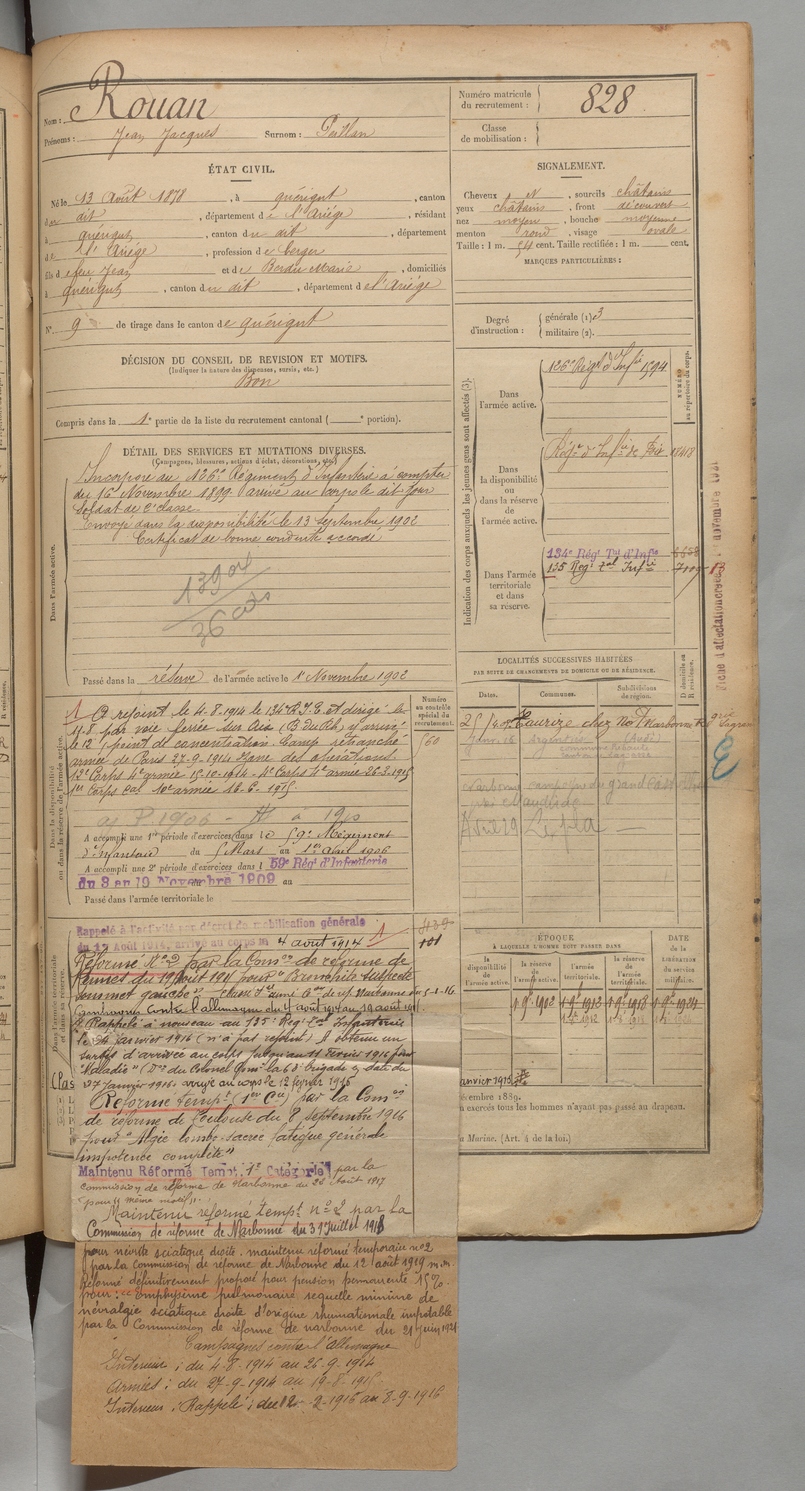 Nom : Rouan
Prénoms : Jean Jacques Surnom : Paillan
Numéro matricule du recrutement : 828
Classe de mobilisation :
ÉTAT CIVIL.
Né le 13 Août 1878, à quérigut, canton
du dit, département de l'Ariége, résidant
à quérigut, canton du dit, département
de l'Ariége, profession de berger
fils de feu Jean et de Bordu Marie, domiciliés
à quérigut, canton du dit, département de l'Ariége
N° 9 de tirage dans le canton de quérigut
SIGNALEMENT.
Cheveux N, sourcils châtains
yeux châtains, front découvert
nez moyen, bouche moyenne
menton rond, visage ovale
Taille : 1 m. 54 cent. Taille rectifiée : 1 m. cent.
MARQUES PARTICULIÈRES :
Degré d'instruction : générale (1) 3
militaire (2).
DÉCISION DU CONSEIL DE REVISION ET MOTIFS.
(Indiquer la nature des dispenses, sursis, etc.)
Bon
Compris dans la 1e partie de la liste du recrutement cantonal ( e portion).
DÉTAIL DES SERVICES ET MUTATIONS DIVERSES.
(Campagnes, blessures, actions d'éclat, décorations, etc.)
Dans l'armée active.
Incorporé au 126e Régiment d'Infanterie à compter
du 16 Novembre 1899. arrivé au corps le dit jour
Soldat de 2e classe.
Envoyé dans la disponibilité le 13 Septembre 1902
Certificat de bonne conduite accordé
Passé dans la réserve de l'armée active le 1er Novembre 1902
Indication des corps auxquels les jeunes gens sont affectés (3).
NUMÉRO au répertoire du corps.
Dans l'armée active.
126e Régt d'Infie 1594
Dans la disponibilité ou dans la réserve de l'armée active.
Régt d'Infie de Foix
Dans l'armée territoriale et dans sa réserve.
134e Régt Tal d'Infie
135 Régt tal Infie
LOCALITÉS SUCCESSIVES HABITÉES
PAR SUITE DE CHANGEMENTS DE DOMICILE OU DE RÉSIDENCE.
Dates. Communes. Subdivisions de région. D domicile ou R résidence.
Dans la disponibilité ou dans la réserve de l'armée active.
Numéro au contrôle spécial du recrutement.
560
A rejoint le 4-8-1914 le 134e R.I.T. et dirigé le
11-8 par voie ferrée sur Aix (B du Rh) y arrivé
le 12 (point de concentration. Camp retranché
armée de Paris 27-9-1914 Zone des opérations
12e Corps 4e armée 15-10-1914 - 4e Corps 4e armée 26-3-1915
1er Corps Cal 10e armée 16-6-1915
A accompli une 1re période d'exercices dans le 59e Régiment
d'infanterie du 5 Mars au 1er Avril 1906
A accompli une 2e période d'exercices dans le 59e Régt d'Infanterie
du 3 au 19 Novembre 1909 au
Passé dans l'armée territoriale le
Avril 29
Rappelé à l'activité décret de mobilisation générale
du 1er Août 1914, arrivé au corps le 4 août 1914
Réformé N° 2 par la Comson de réforme de
101
Rappelé à nouveau au 135e Régt tal Infanterie
le 24 janvier 1916 (n'a pas rejoint) A obtenu un
sursis d'arrivée au corps jusqu'au 11 février 1916 pour
27 Janvier 1916. arrivé au corps le 12 février 1916
Réformé tempre (1er Cie) par la Comon
de réforme de Toulouse du 8 septembre 1916
pour "Algie lombo-sacrée fatigue générale
impotence complète"
Maintenu Réformé Tempt 1re Catégorie par la
commission de réforme de Narbonne du 22 août 1917
pour même motif.
Maintenu réformé tempt n° 2 par la
Commission de réforme de Narbonne du 31 Juillet 1918
pour névrite sciatique droite. maintenu réformé temporaire n°2
par la Commission de réforme de Narbonne du 12 août 1919 m.m.
Réformé définitivement proposé pour pension permanente 15%
pour : "Emphysème pulmonaire sequelle minime de
névralgie sciatique droite d'origine rhumatismale imputable
par la Commission de réforme de narbonne du 21 juin 1921
Campagnes contre l'Allemagne
Intérieur : du 4-8-1914 au 26-9-1914
Armées : du 27-9-1914 au 19-8-1915
Intérieur : Rappelé : du 12-2-1916 au 8-9-1916
ÉPOQUE
À LAQUELLE L'HOMME DOIT PASSER DANS
la disponibilité de l'armée active. la réserve de l'armée active. l'armée territoriale. la réserve de l'armée territoriale.
DATE de la LIBÉRATION du service militaire.
1-9e 1902 1-9e 1912 1-9e 1918 1-9e 1924
écembre 1889.
n exercés tous les hommes n'ayant pas passé au drapeau.
u Marine. (Art. 4 de la loi.)